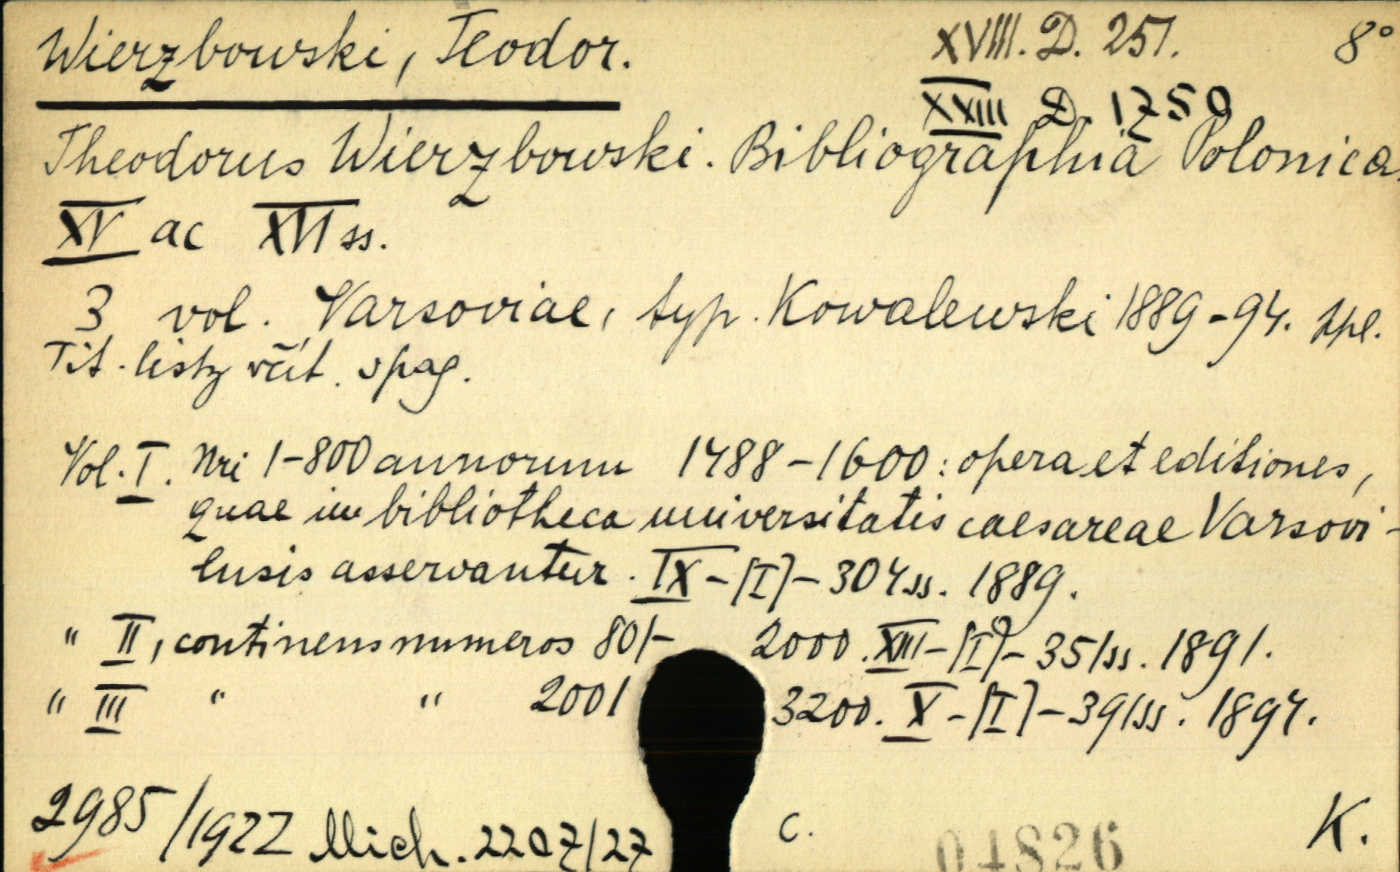 Wierzbowski, Teodor. XVIII. D. 251. 8°
XXIII D. 1250
Theodorus Wierzbowski. Bibliographia Polonica
XV ac XVI ss.
3 vol. Varsoviae, typ. Kowalewski 1889-94. Hpl.
Tit. listy včít. v pag.
Vol. I. Nri 1-800 annorum 1488-1600: opera et editiones,
quae in bibliotheca universitatis caesareae Varsovi-
ensis asservantur. IX-[I]-304 ss. 1889.
" II, continens numeros 801- 2000. XIII-[I]-351 ss. 1891.
" III " " 2001 3200. X-[I]-391 ss. 1894.
2985/1922 Mich. 2207/27 C. K.
04826